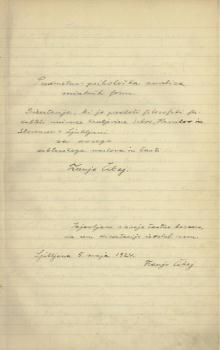 Predmetno-psihološka analiza
umetniških form.
Disertacija, ki jo predloži filozofski fa-
kulteti univerze kraljevine Srbov, Hrvatov in
Slovencev v Ljubljani
za dosego
doktorskega naslova in časti
Franjo Čibej.
Izjavljam s svojo častno besedo,
da sem disertacijo izdelal sam.
Ljubljana 5. maja 1924.
Franjo Čibej